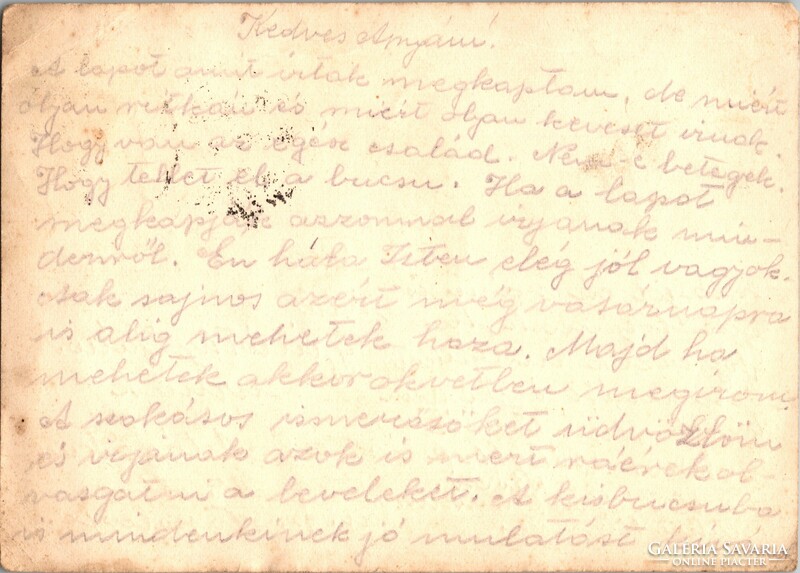 Kedves Anyám!
A lapot amit írtak megkaptam, de miért
oljan ritkán és miért oljan keveset írnak.
Hogy van az egész család. Nem-e betegek.
Hogy tellet el a bucsu. Ha a lapot
megkapják aszonnal irjanak min-
denről. Én hála Isten elég jól vagyok.
csak sajnos azért még vasárnapra
is alig mehetek haza. Majd ha
mehetek akkor okvetlen megirom.
A szokásos ismerősöket üdvözlöm
és irjanak azok is mert ráérek ol-
vasgatni a leveleket. A kisbucsuba
is mindenkinek jó mulatást
GALERIA SAVARIA
ONLINE PIACTÉR